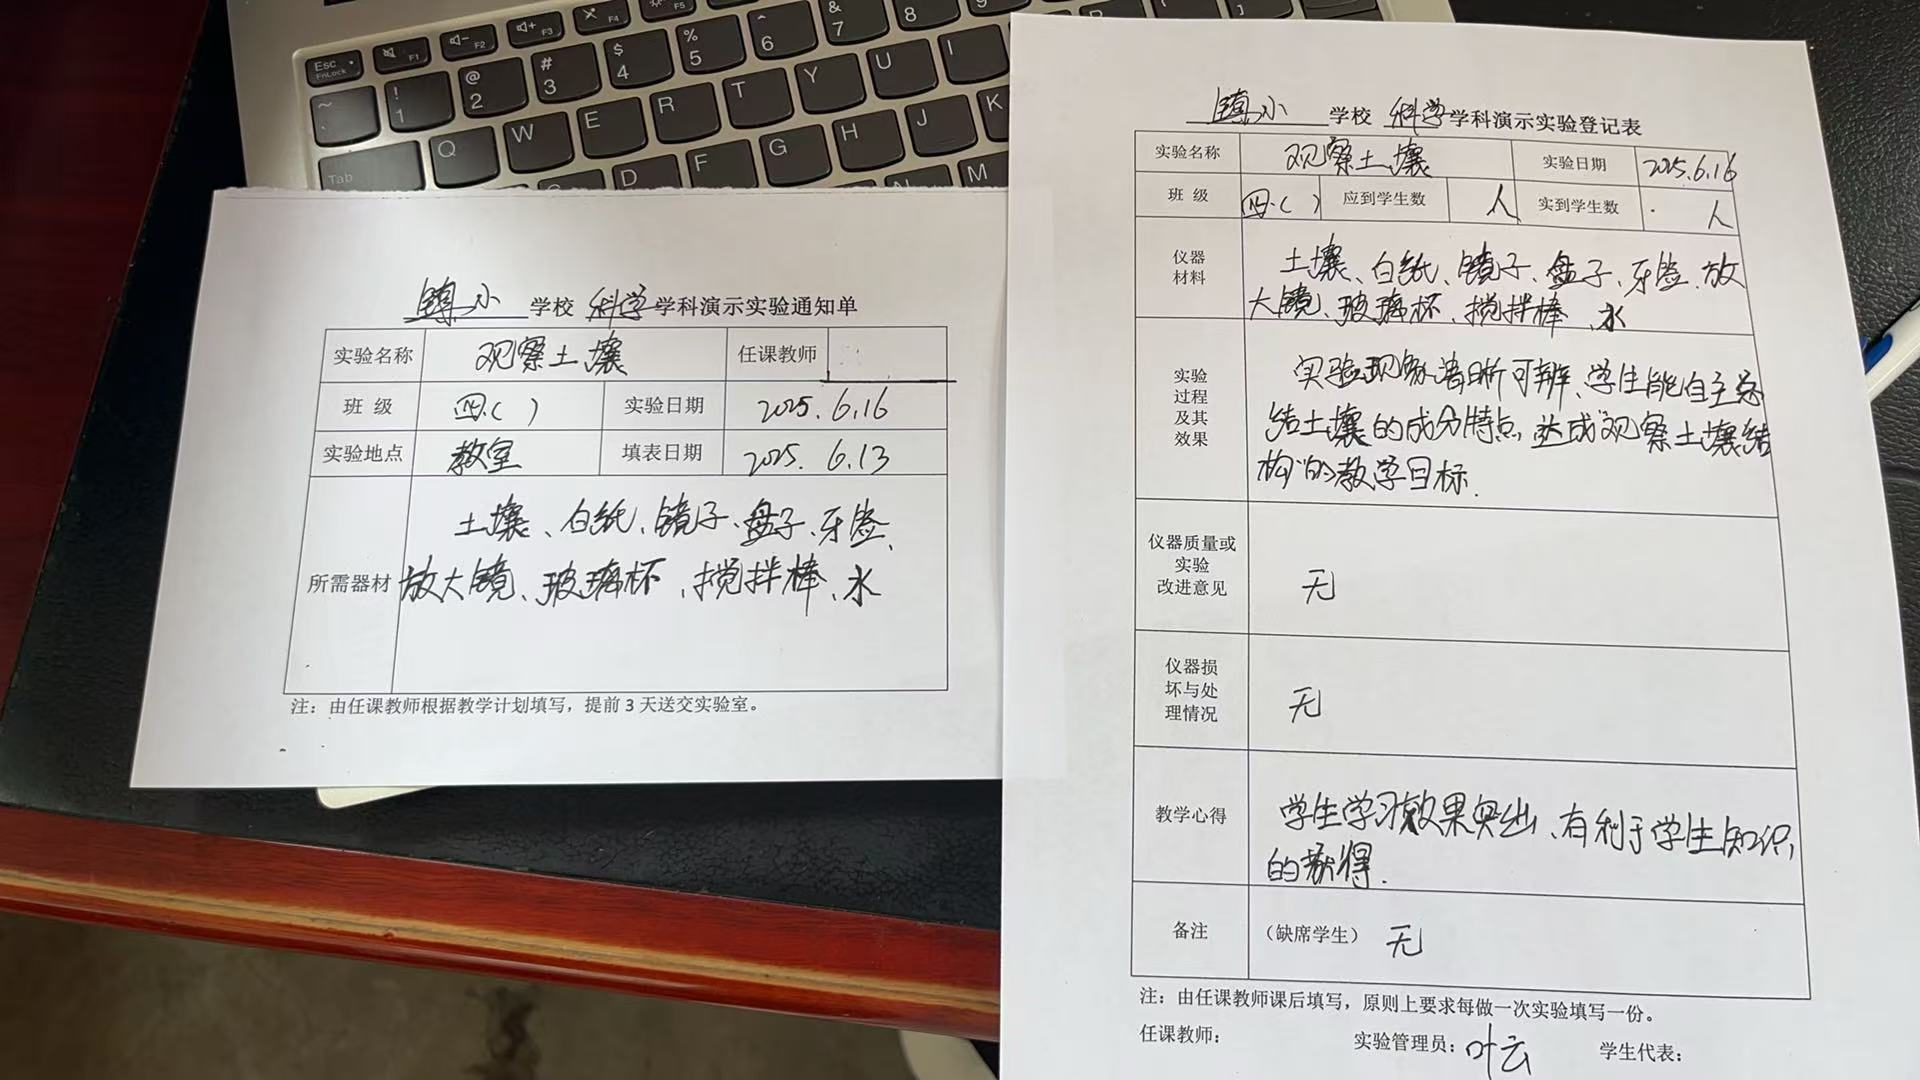 Esc
FnLock
F1
F2
F3
F4
F5
~
!
1
@
2
#
3
$
4
%
5
^
6
&
7
8
9
Tab
Q
W
E
R
T
Y
U
I
D
F
G
H
J
K
N
M
镇小 学校 科学学科演示实验通知单
实验名称 观察土壤 任课教师
班 级 四.( ) 实验日期 2025.6.16
实验地点 教室 填表日期 2025.6.13
所需器材
土壤、白纸、镜子、盘子、牙签、
放大镜、玻璃杯、搅拌棒、水
注：由任课教师根据教学计划填写，提前 3 天送交实验室。
镇小 学校 科学学科演示实验登记表
实验名称 观察土壤 实验日期 2025.6.16
班 级 四.( ) 应到学生数 人 实到学生数 人
仪器
材料
土壤、白纸、镜子、盘子、牙签、放
大镜、玻璃杯、搅拌棒、水
实验
过程
及其
效果
实验现象清晰可辨、学生能自主总
结土壤的成分特点，达成“观察土壤结
构”的教学目标.
仪器质量或
实验
改进意见
无
仪器损
坏与处
理情况
无
教学心得
学生学习效果突出、有利于学生知识
的获得.
备注 （缺席学生） 无
注：由任课教师课后填写，原则上要求每做一次实验填写一份。
任课教师： 实验管理员：叶云 学生代表：